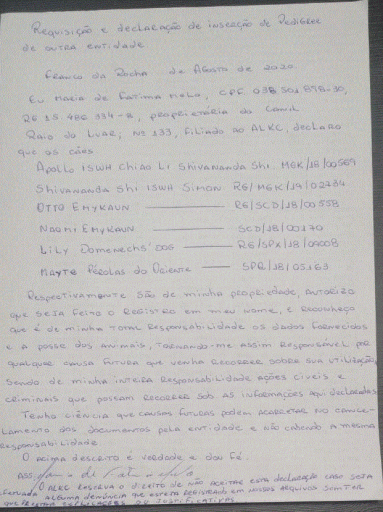 Requisição e declaração de inserção de Pedigree
de outra entidade
Franco da Rocha de Agosto de 2020
Eu Maria de Fatima Melo, CPF 038 501 898-30,
RG 15 480 334-2, proprietária do Canil
Raio do Luar, Nº 133, filiado ao ALKC, declaro
que os cães
Apollo ISWH Chiao Li Shivananda Shi MGK/18/00569
Shivananda Shi ISWH Simon RG/MGK/19/02784
Otto Emykaun RG/SCD/18/00558
Naomi Emykaun SCD/18/00170
Lily Domenech's Dog RG/SPX/18/09008
Mayte Pérolas do Oriente SPR/18/05163
Respectivamente são de minha propriedade, autorizo
que seja feito o registro em meu nome, e reconheço
que é de minha total responsabilidade os dados fornecidos
e a posse dos animais, tornando-me assim responsável por
qualquer causa futura que venha recorrer sobre sua utilização,
sendo de minha inteira responsabilidade ações civeis e
criminais que possam recorrer sob as informações aqui declaradas
Tenho ciência que causas futuras podem acarretar no cance-
lamento dos documentos pela entidade e não cabendo a mesma
responsabilidade
O acima descrito é verdade e dou fé.
Ass:
O ALKC reserva o direito de não aceitar esta declaração caso seja
alguma denúncia que esteja registrado em nossos arquivos sem ter
justificativas